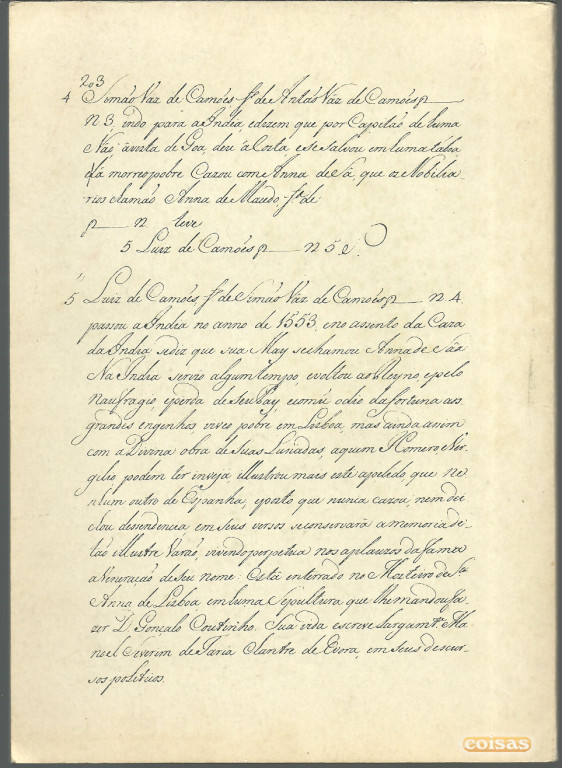 203
4 Simão Vaz de Camões fº de Antão Vaz de Camões
N 3. indo para a India, edizem que por Capitão de huma
Não à vista de Goa, deu à Costa ese salvou em huma táboa
e lá morreo pobre Cazou com Anna de Sá, que os Nobilia
rios chamão Anna de Macedo, fª de
n teve
5 Luiz de Camões n 5 é.
5 Luiz de Camões fº de Simão Váz de Camões n. 4.
passou a India no anno de 1553. e no assento da Caza
da India se diz que sua May se chamou Anna de Sâã
Na India servio algum tempo, e voltou ao Reyno, e pelo
naufragio, e perda de seu Pay, e comũ odio da fortuna aos
grandes engenhos, viveo pobre em Lisboa, mas ainda assim
com a Divina obra de suas Luziadas, a quem Homero e Vir
gilio podem ter inveja, illustrou mais este apelido, que ne
nhum outro de Espanha, e posto que nunca cazou, nem dei
xou descendencia em seus versos se conservará a memoria de
tão illustre Varão vivendo perpetua nos aplauzos da fama
a Veneração de seu nome. Está enterrado no Mosteiro de Sta
Anna de Lisboa em huma Sepultura que lhe mandou fa-
zer D. Gonçalo Coutinho. Sua vida escreve largamte. Ma-
noel Severim de Faria Chantre de Evora, em seus descur-
sos politicos.
coisas